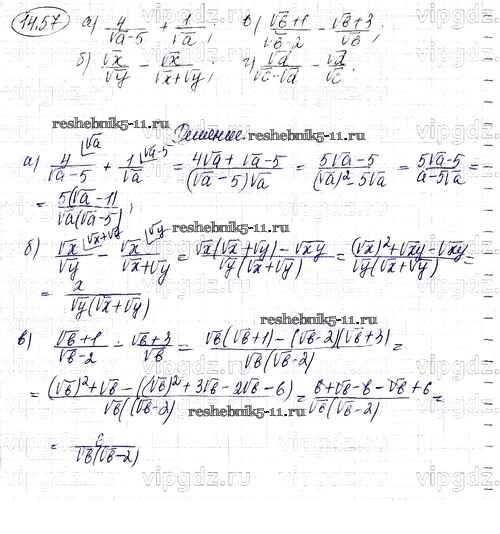 14.57 а) 4/(√a-5) + 1/√a; в) (√b+1)/(√b-2) - (√b+3)/√b;
б) √x/√y - √x/(√x+√y); г) √d/(√c-√d) - √d/√c;
reshebnik5-11.ru Решение. reshebnik5-11.ru
а) 4/(√a-5) |√a + 1/√a |√a-5 = (4√a + √a-5)/((√a-5)√a) = (5√a-5)/((√a)²-5√a) = (5√a-5)/(a-5√a) =
= 5(√a-1)/(√a(√a-5));
reshebnik5-11.ru
б) √x/√y |√x+√y - √x/(√x+√y) |√y = (√x(√x+√y)-√xy)/(√y(√x+√y)) = ((√x)²+√xy-√xy)/(√y(√x+√y)) =
= x/(√y(√x+√y))
reshebnik5-11.ru
в) (√b+1)/(√b-2) - (√b+3)/√b = (√b(√b+1)-(√b-2)(√b+3))/(√b(√b-2)) =
= ((√b)²+√b-((√b)²+3√b-2√b-6)/(√b(√b-2) = (b+√b-b-√b+6)/(√b(√b-2)) =
reshebnik5-11.ru
= 6/(√b(√b-2))
vipgdz.ru vipgdz.ru vipgdz.ru